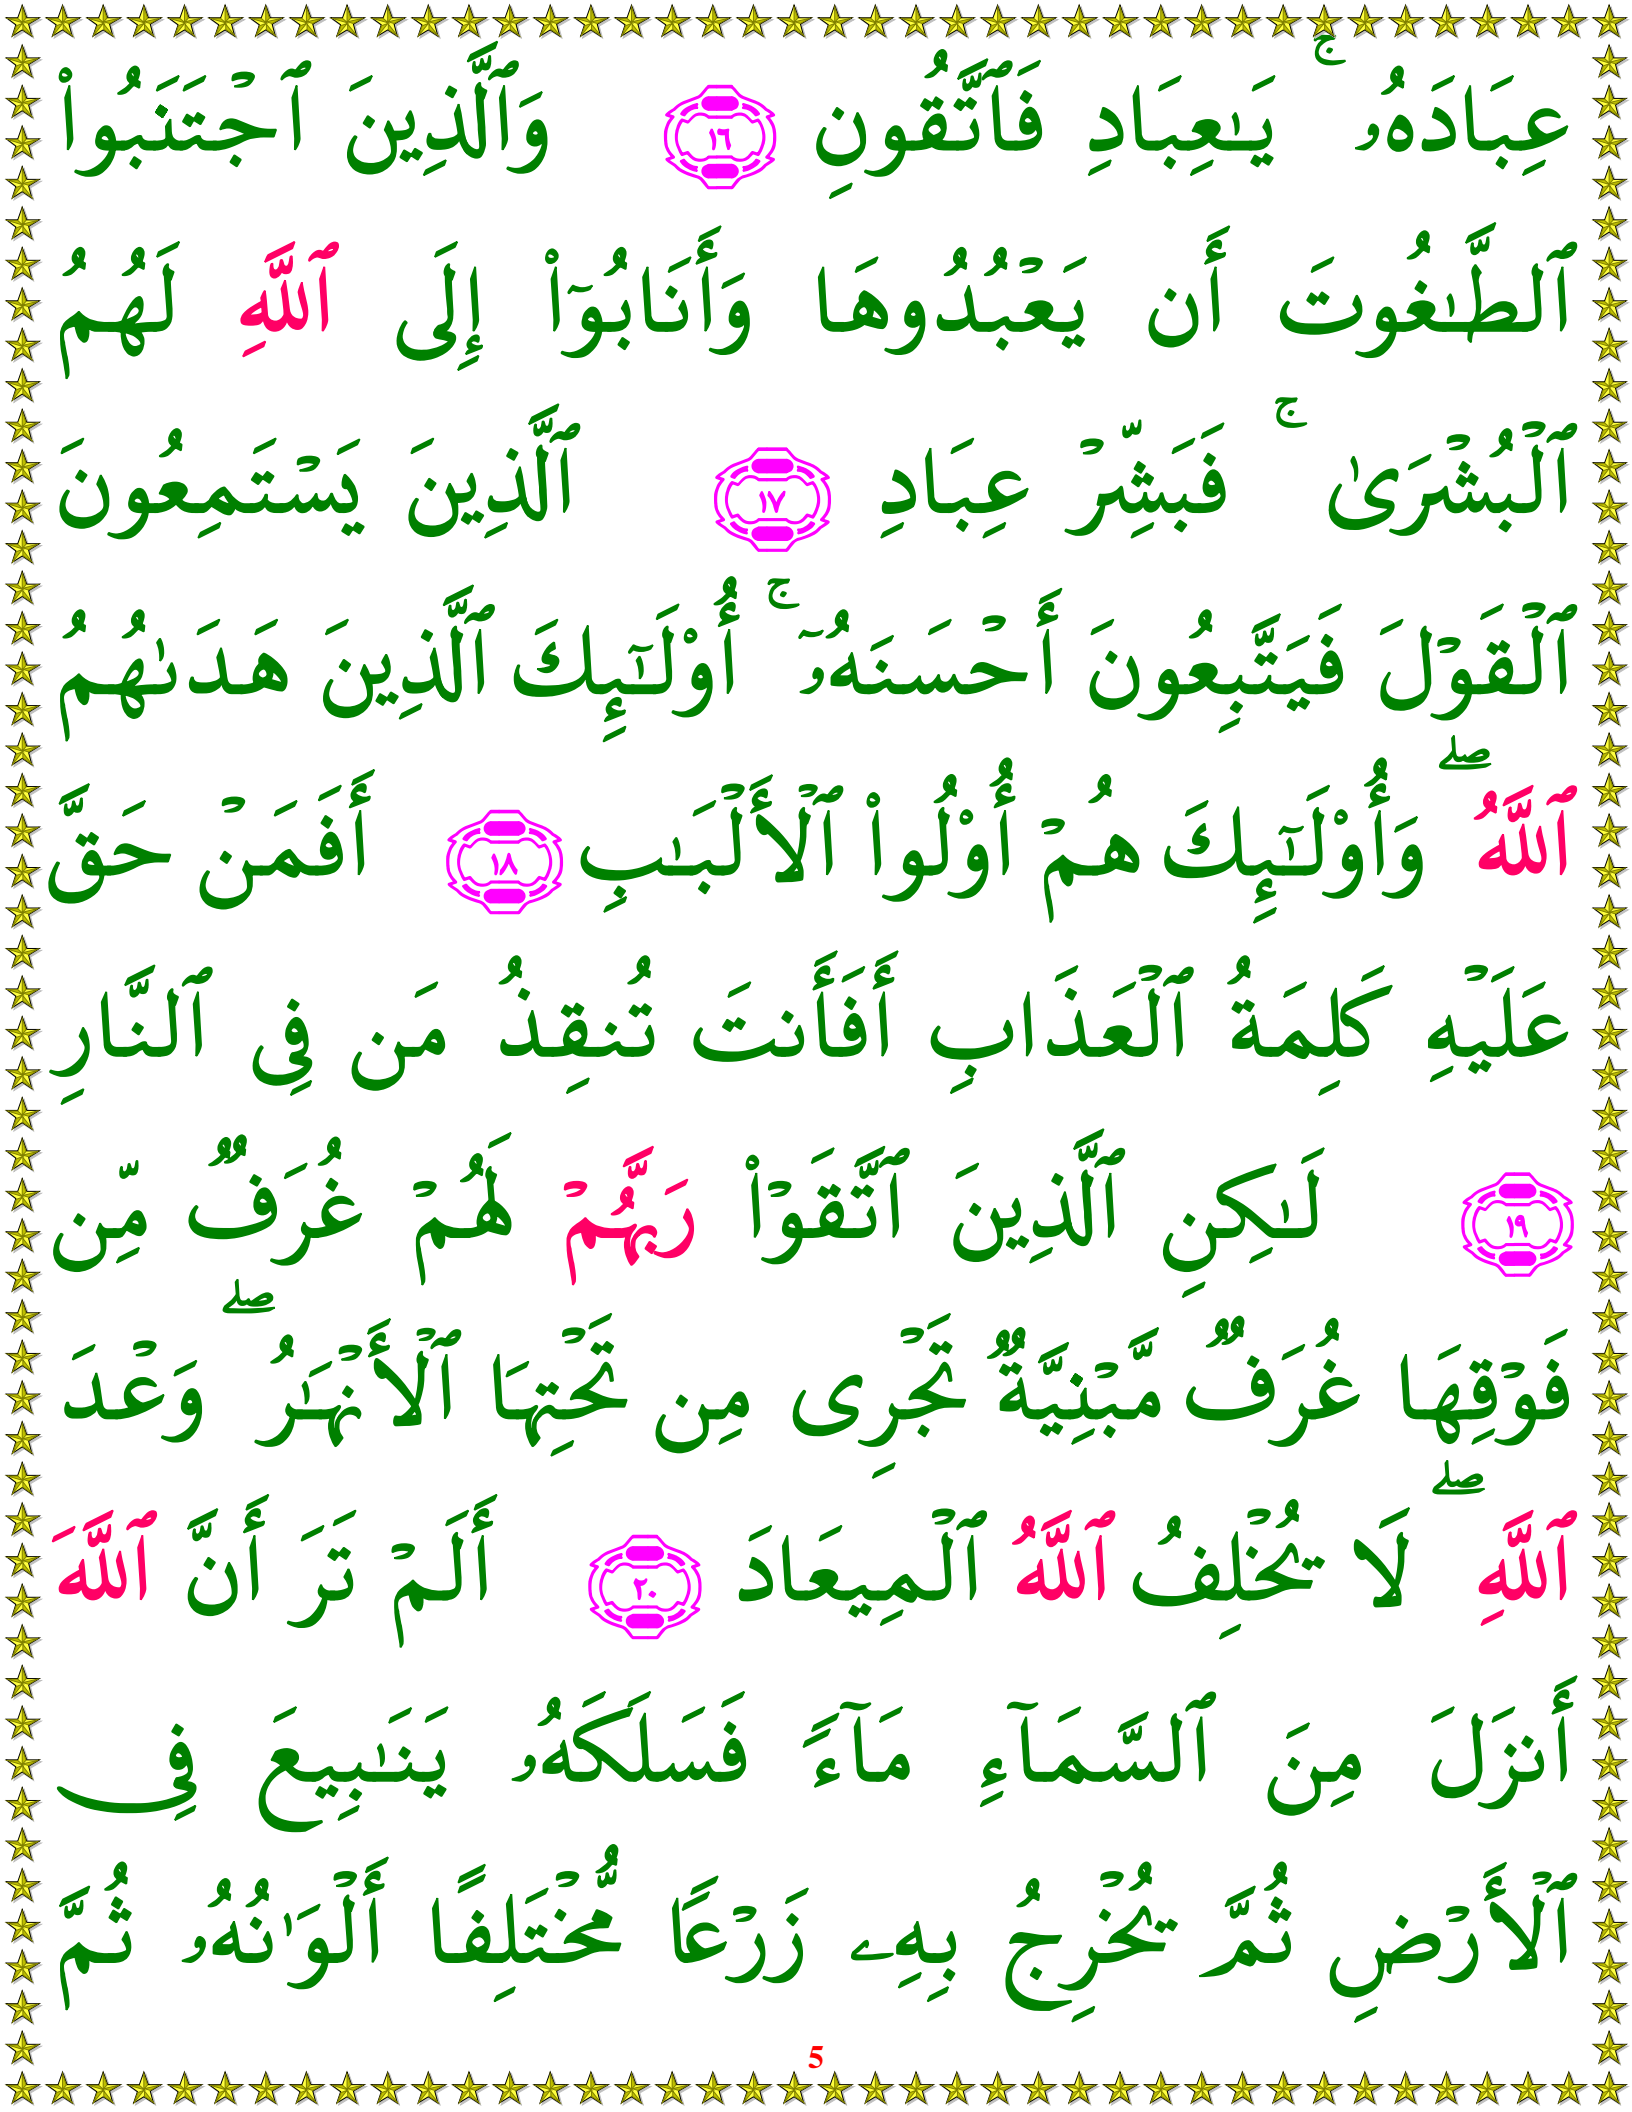 عِبَادَهُۥ ۚ يَـٰعِبَادِ فَٱتَّقُونِ ١٦ وَٱلَّذِينَ ٱجْتَنَبُوا۟
ٱلطَّـٰغُوتَ أَن يَعْبُدُوهَا وَأَنَابُوٓا۟ إِلَى ٱللَّهِ لَهُمُ
ٱلْبُشْرَىٰ ۚ فَبَشِّرْ عِبَادِ ١٧ ٱلَّذِينَ يَسْتَمِعُونَ
ٱلْقَوْلَ فَيَتَّبِعُونَ أَحْسَنَهُۥٓ ۚ أُو۟لَـٰٓئِكَ ٱلَّذِينَ هَدَىٰهُمُ
ٱللَّهُ ۖ وَأُو۟لَـٰٓئِكَ هُمْ أُو۟لُوا۟ ٱلْأَلْبَـٰبِ ١٨ أَفَمَنْ حَقَّ
عَلَيْهِ كَلِمَةُ ٱلْعَذَابِ أَفَأَنتَ تُنقِذُ مَن فِى ٱلنَّارِ
١٩ لَـٰكِنِ ٱلَّذِينَ ٱتَّقَوْا۟ رَبَّهُمْ لَهُمْ غُرَفٌ مِّن
فَوْقِهَا غُرَفٌ مَّبْنِيَّةٌ تَجْرِى مِن تَحْتِهَا ٱلْأَنْهَـٰرُ ۖ وَعْدَ
ٱللَّهِ ۖ لَا يُخْلِفُ ٱللَّهُ ٱلْمِيعَادَ ٢٠ أَلَمْ تَرَ أَنَّ ٱللَّهَ
أَنزَلَ مِنَ ٱلسَّمَآءِ مَآءً فَسَلَكَهُۥ يَنَـٰبِيعَ فِى
ٱلْأَرْضِ ثُمَّ يُخْرِجُ بِهِۦ زَرْعًا مُّخْتَلِفًا أَلْوَٰنُهُۥ ثُمَّ
5